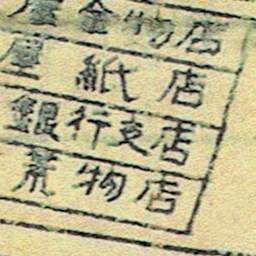 金物店
紙店
銀行支店
荒物店